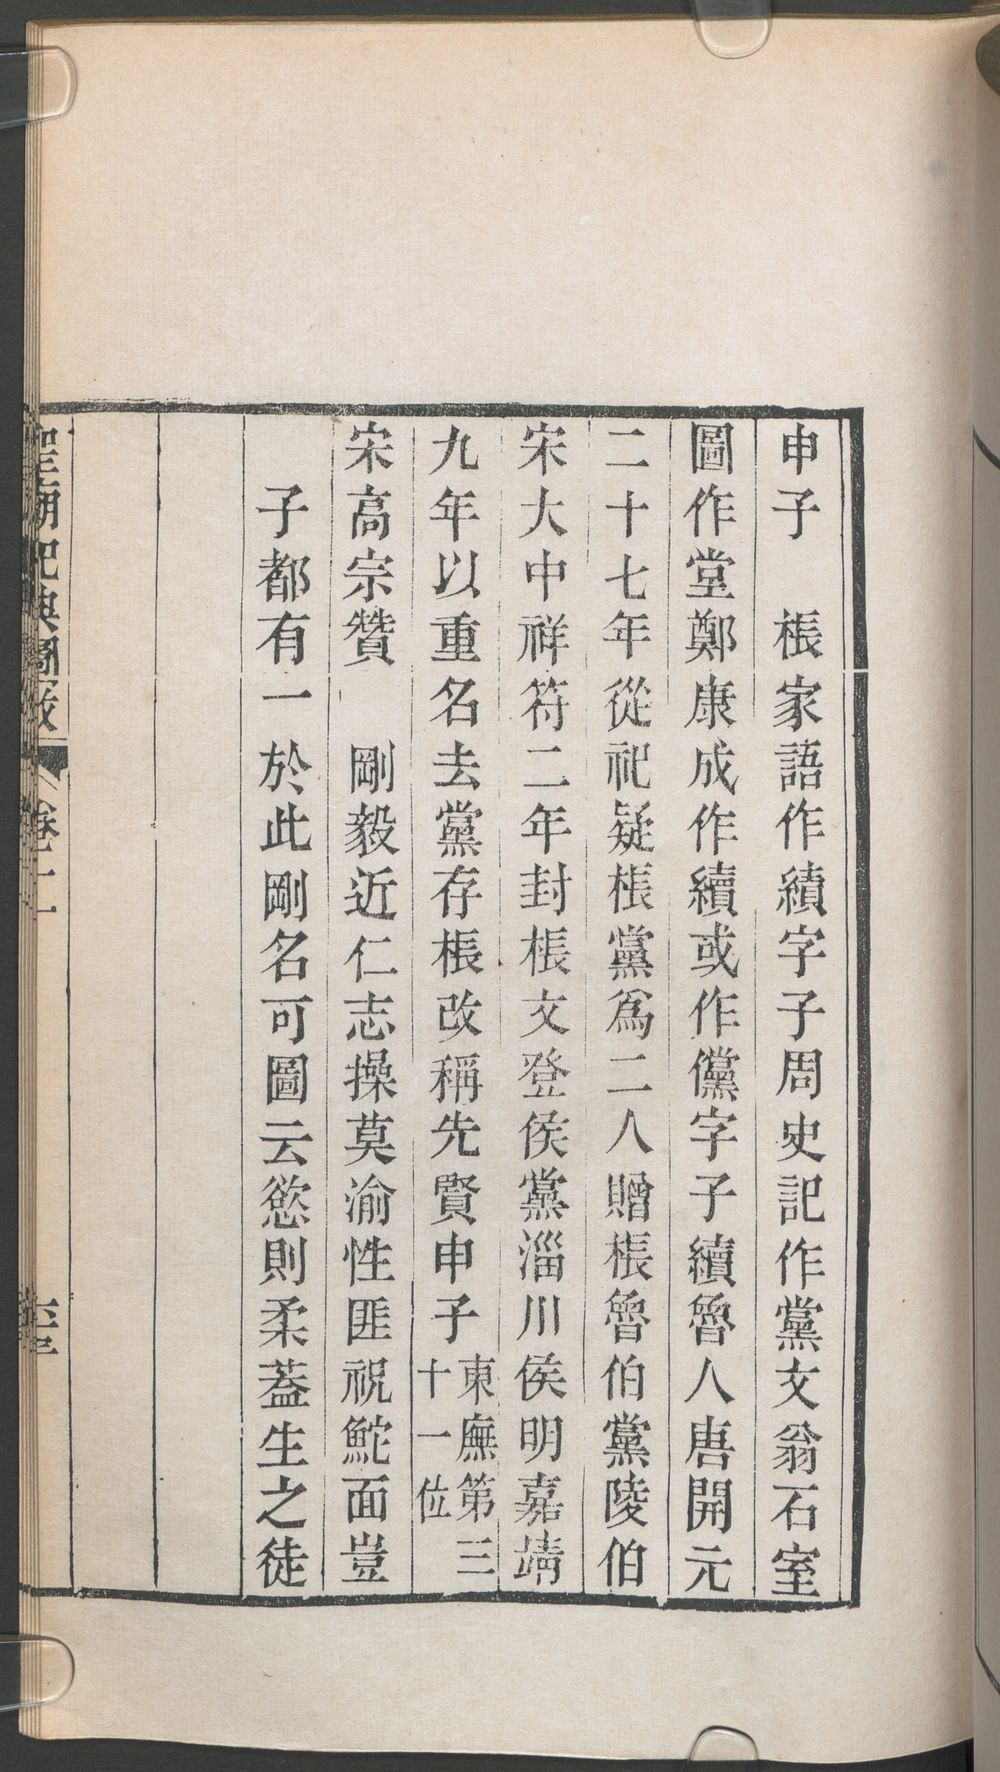 申子　棖家語作續字子周史記作黨文翁石室
圖作堂鄭康成作續或作儻字子續魯人唐開元
二十七年從祀疑棖黨爲二人贈棖魯伯黨陵伯
宋大中祥符二年封棖文登侯黨淄川侯明嘉靖
九年以重名去黨存棖改稱先賢申子東廡第三十一位
宋高宗贊　剛毅近仁志操莫渝性匪祝鮀面豈
子都有一於此剛名可圖云慾則柔葢生之徒
聖廟祀典圖攷　卷二